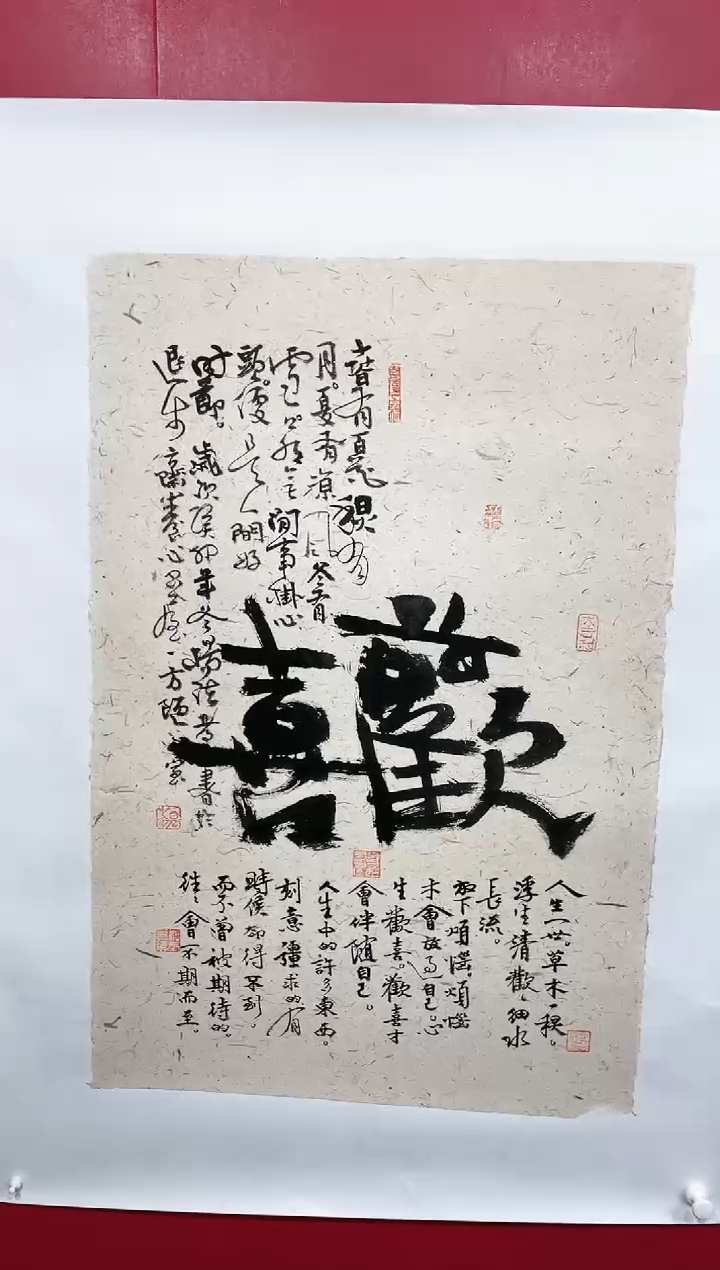 春有百花秋有
月。夏有涼风冬有
雪閒事掛心
頭。便是人間好
时節。歲次癸卯年冬書於
退步齋養心一方陋室
歡喜
人生一世。草木一秋。
浮生清歡、細水
長流。
放下煩惱。煩惱
才會放過自己。心
生歡喜。歡喜才
會伴隨自己。
人生中的許多東西。
刻意彊求的有
時候却得不到。
而不曾被期待的。
往々會不期而至。